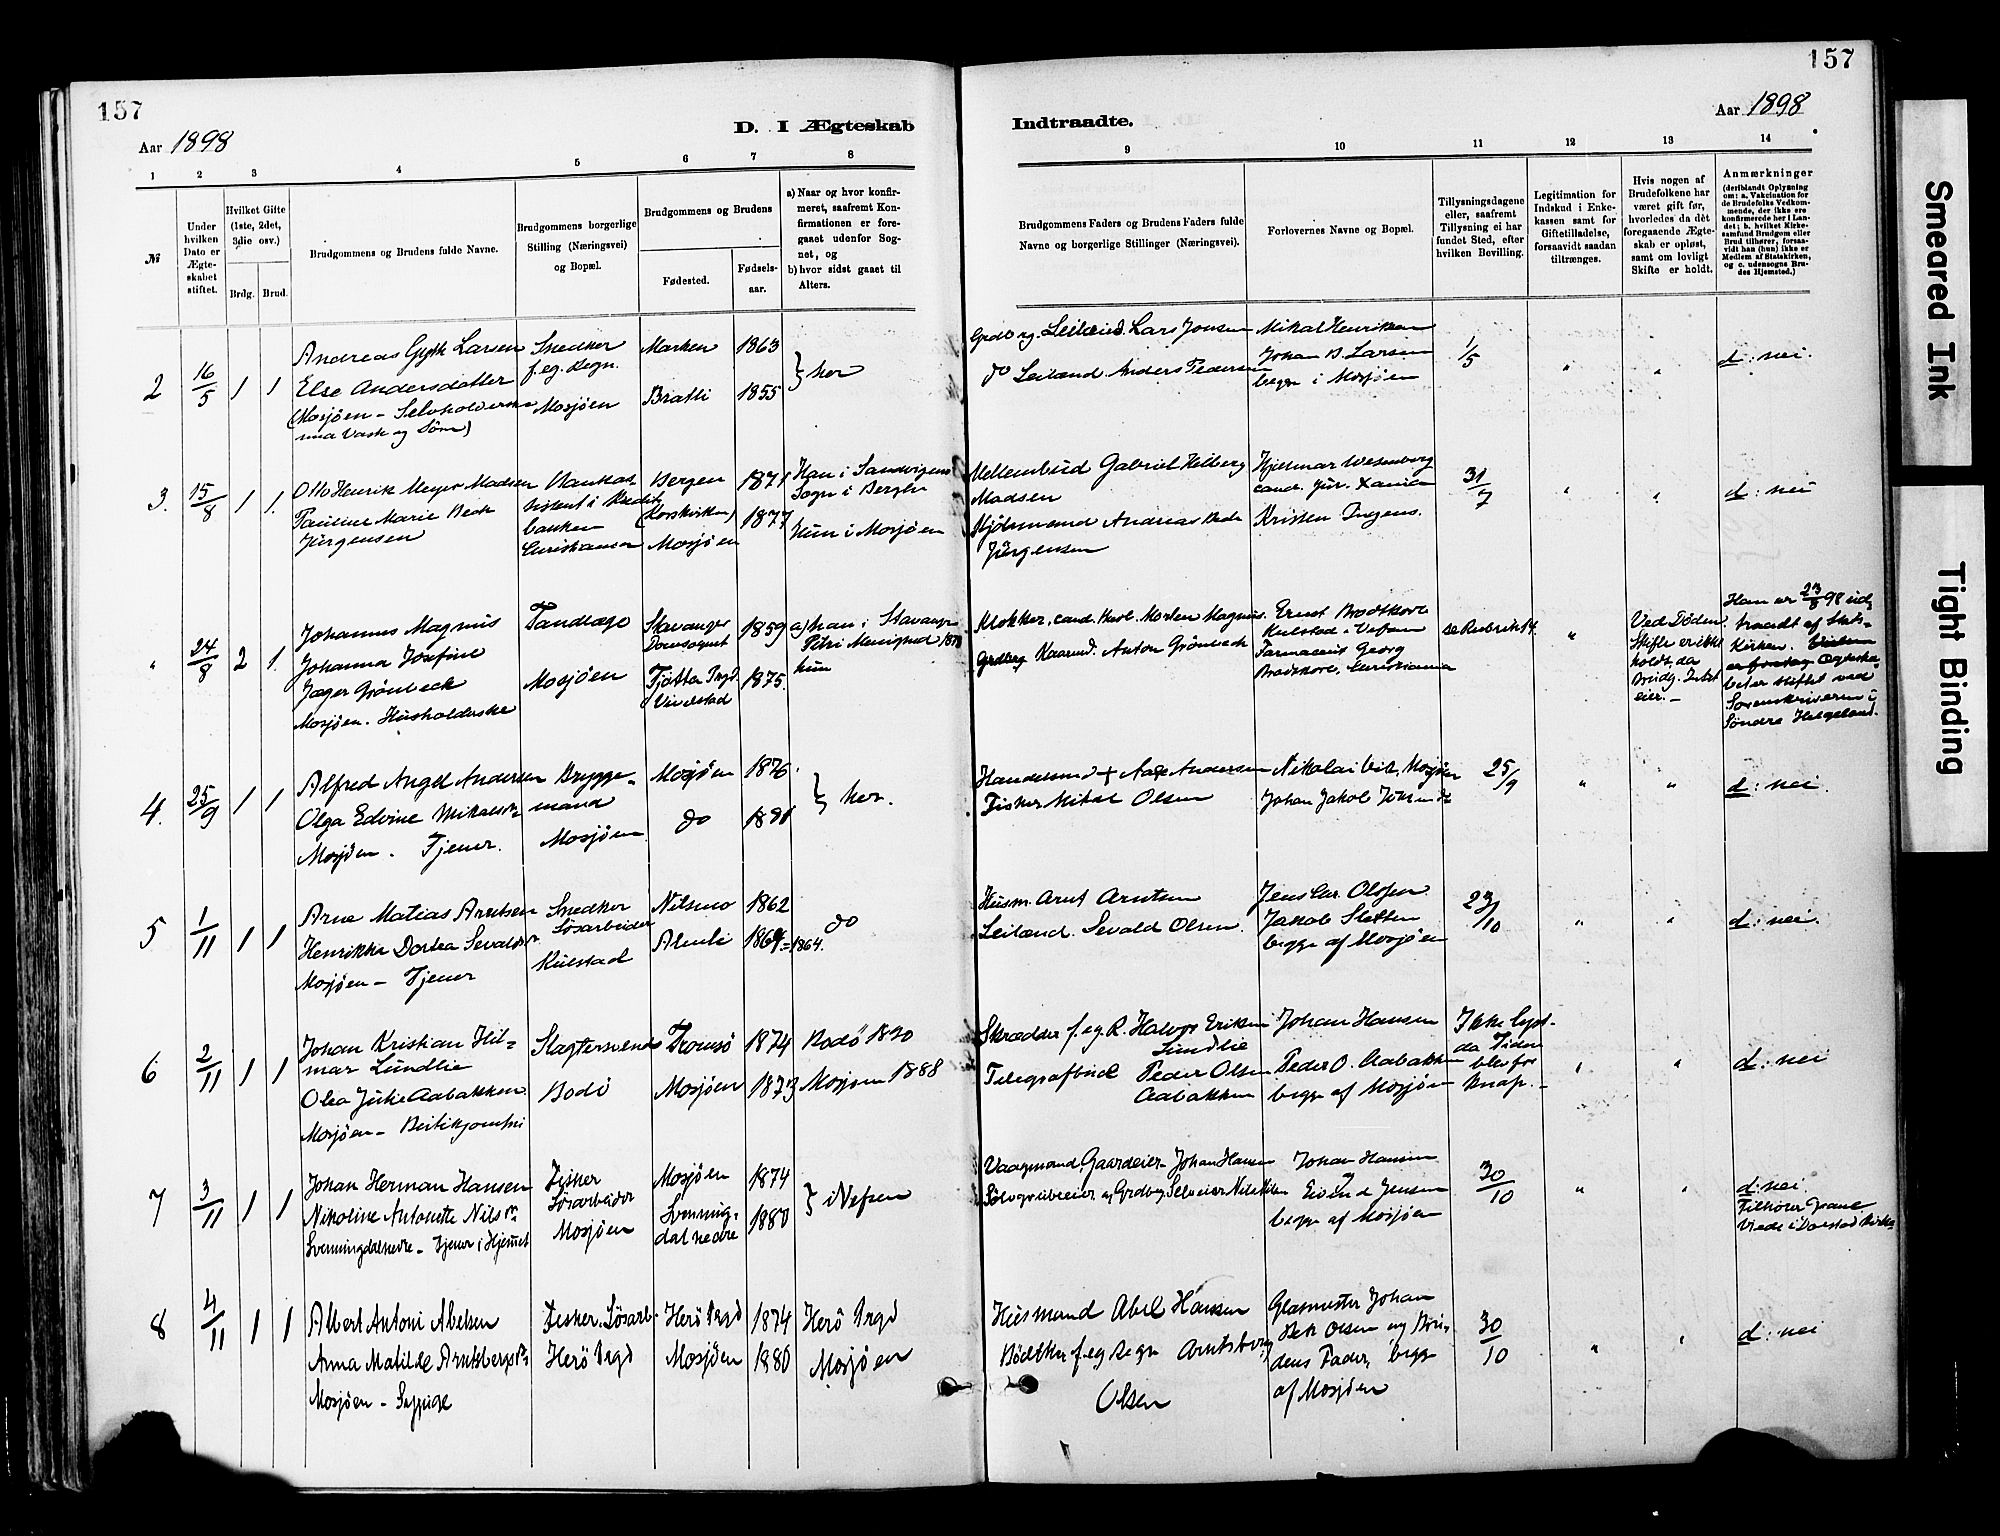 157
Aar 1898
D. I Ægteskab
1 2 3 4 5 6 7 8
№
Under hvilken Dato er Ægteskabet stiftet.
Hvilket Gifte (1ste, 2det, 3die osv.)
Brdg. Brud.
Brudgommens og Brudens fulde Navne.
Brudgommens borgerlige Stilling (Næringsvei) og Bopæl.
Brudgommens og Brudens
Fødested. Fødselsaar.
a) Naar og hvor konfirmeret, saafremt Konfirmationen er foregaaet udenfor Sognet, og
b) hvor sidst gaaet til Alters.
2 16/5 1 1
Andreas Gjeth Larsen Snedker Marken 1863
f. eg. Regn.
Else Andersdatter Bratli 1855 } her
(Mosjøen - Selvholderske Mosjøen
ved Vask og Søm)
3. 15/8 1 1.
Otto Henrik Meyer Madsen Bergen 1871 Han i Sandvigens
Sogn i Bergen
Pauline Marie Beck (Korskirken) 1877
Jürgensen Christiania Mosjøen Hun i Mosjøen
" 24/8 2 1.
Johannes Magnus Tandlæge Stavanger 1859 a) han i Stavanger
Domsogn Petri Menighed
Johanna Josefine Tjøtta Prgd. 1875. hun
Jæger Grönbeck Mosjøen Vivelstad
Mosjøen. Husholderske
4. 25/9 1 1
Alfred Angel Andersen Brygge- Mosjøen 1876
Olga Edvine Mikalsd. mand do } her.
Mosjøen. Tjener. Mosjøen
5 1/11 1 1
Arne Matias Arntsen Snedker Nilsmo 1862 do
Løsarbeider
Henrikke Dortea Sevaldsd. Kulstad 1864.
Mosjøen - Tjener
6 2/11 1 1
Johan Kristian Hil- Slagtersvend Tromsö 1874 Bodö 1890
mar Lundlie
Olea Aabakken Bodö Mosjøen 1873 Mosjøen 1888
Mosjøen - Butikjomfru
7 3/11 1 1
Johan Herman Hansen Fisker Mosjøen 1874
Løsarbeider } i Vefsen
Nikoline Antonette Nilsd. Mosjøen Svenning- 1880
Svenningdal nedre - Tjener i Hjemmet dal nedre
8 4/11 1 1
Albert Antoni Abelsen Fisker. Løsarb. Herö Prgd 1874 Herö Prgd
Anna Matilde Arntsbergsd. Herö Prgd Mosjöen 1880 Mosjøen
Mosjøen - Sypige
157
Aar 1898
Indtraadte.
9 10 11 12 13 14
Brudgommens Faders og Brudens Faders fulde Navne og borgerlige Stillinger (Næringsvei).
Forlovernes Navne og Bopæl.
Tillysningsdagene eller, saafremt Tillysning ei har fundet Sted, efter hvilken Bevilling.
Legitimation for Indskud i Enkekassen samt for Giftetilladelse, forsaavidt saadan tiltrænges.
Hvis nogen af Brudefolkene har været gift før, hvorledes da dèt foregaaende Ægteskab er opløst, samt om lovligt Skifte er holdt.
Anmærkninger
(deriblandt Oplysning om: a. Vakcination for de Brudefolks Vedkommende, der ikke ere konfirmerede her i Landet; b. hvilket Kirkesamfund Brudgom eller Brud tilhører, forsaavidt han (hun) ikke er Medlem af Statskirken, og c. udensogns Brudes Hjemsted.)
Grdbrg. Leilænd. Lars Jonsen Mikal Henriksen 1/5 " " d: nei.
do Leilænd. Anders Pedersen Johan B. Larsen
begge i Mosjøen
Gabriel Helberg Hjelmar Wesenberg 31/7 " " d: nei
Madsen cand. jur. Xania
Andreas Beck Kristen
Jürgensen
Klokker, cand. Morten Magnus Ernst Brodtkorb se Rubrik 14. " Ved Døden
Kulstad i Vefsen Skifte er ikke
Anton Grönbeck Farmaceut Georg holdt, da
Brodtkorb, Christiania Brudg. Intet
eier. -
Han er 23/8 98 ud-
traadt af Stats-
kirken. Ægteska-
bet er stiftet ved
Sorenskriveren i
Söndre Helgeland.
Handelsm. + Andersen Nikolai Mosjøen 25/9 " " d: nei.
Fisker Mikal Olsen Johan Jakob
Husm. Arnt Arntsen Jens Chr. Olsen 23/10 " " d: nei.
Leilænd. Sevald Olsen. Jakob Sletten
begge af Mosjøen
Skrædder f. eg. R. Halvor Eriksen Johan Hansen Ikke lyst
Lundlie da Tiden
Telegrafbud Peder Olsen Peder O. Aabakken blev for " " d: nei
Aabakken begge af Mosjøen knap. -
Vaagmand, Gaardeier - Johan Hansen Johan Hansen 30/10 " " d: nei.
Sølvgrubeeier og Grdbrg. Selveier Nils Nilsen Eivend Jensen Tilhører Grane
begge af Mosjøen Viede i Dolstad Kirke
Husmand Abel Hansen Glasmester Johan 30/10 " " d: nei
Bødtker f. eg. Regn. Arntsberg Olsen og Bru-
Olsen dens Fader, begge
af Mosjøen
Smeared Ink
Tight Binding